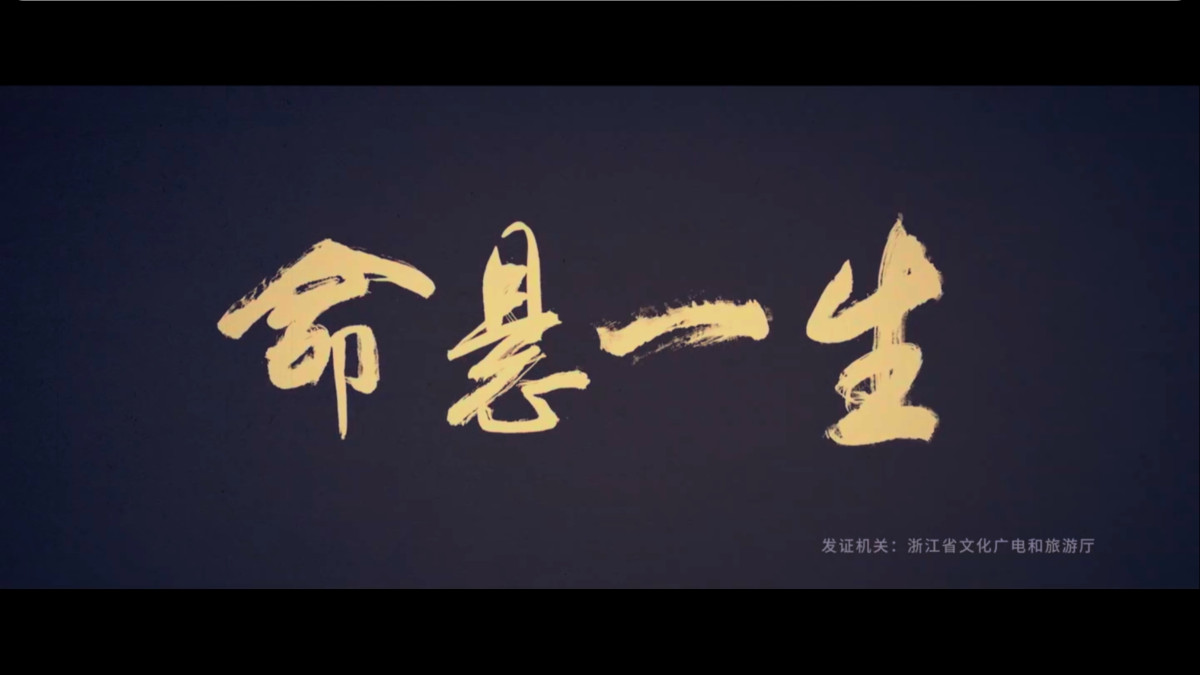 命悬一生
发证机关：浙江省文化广电和旅游厅